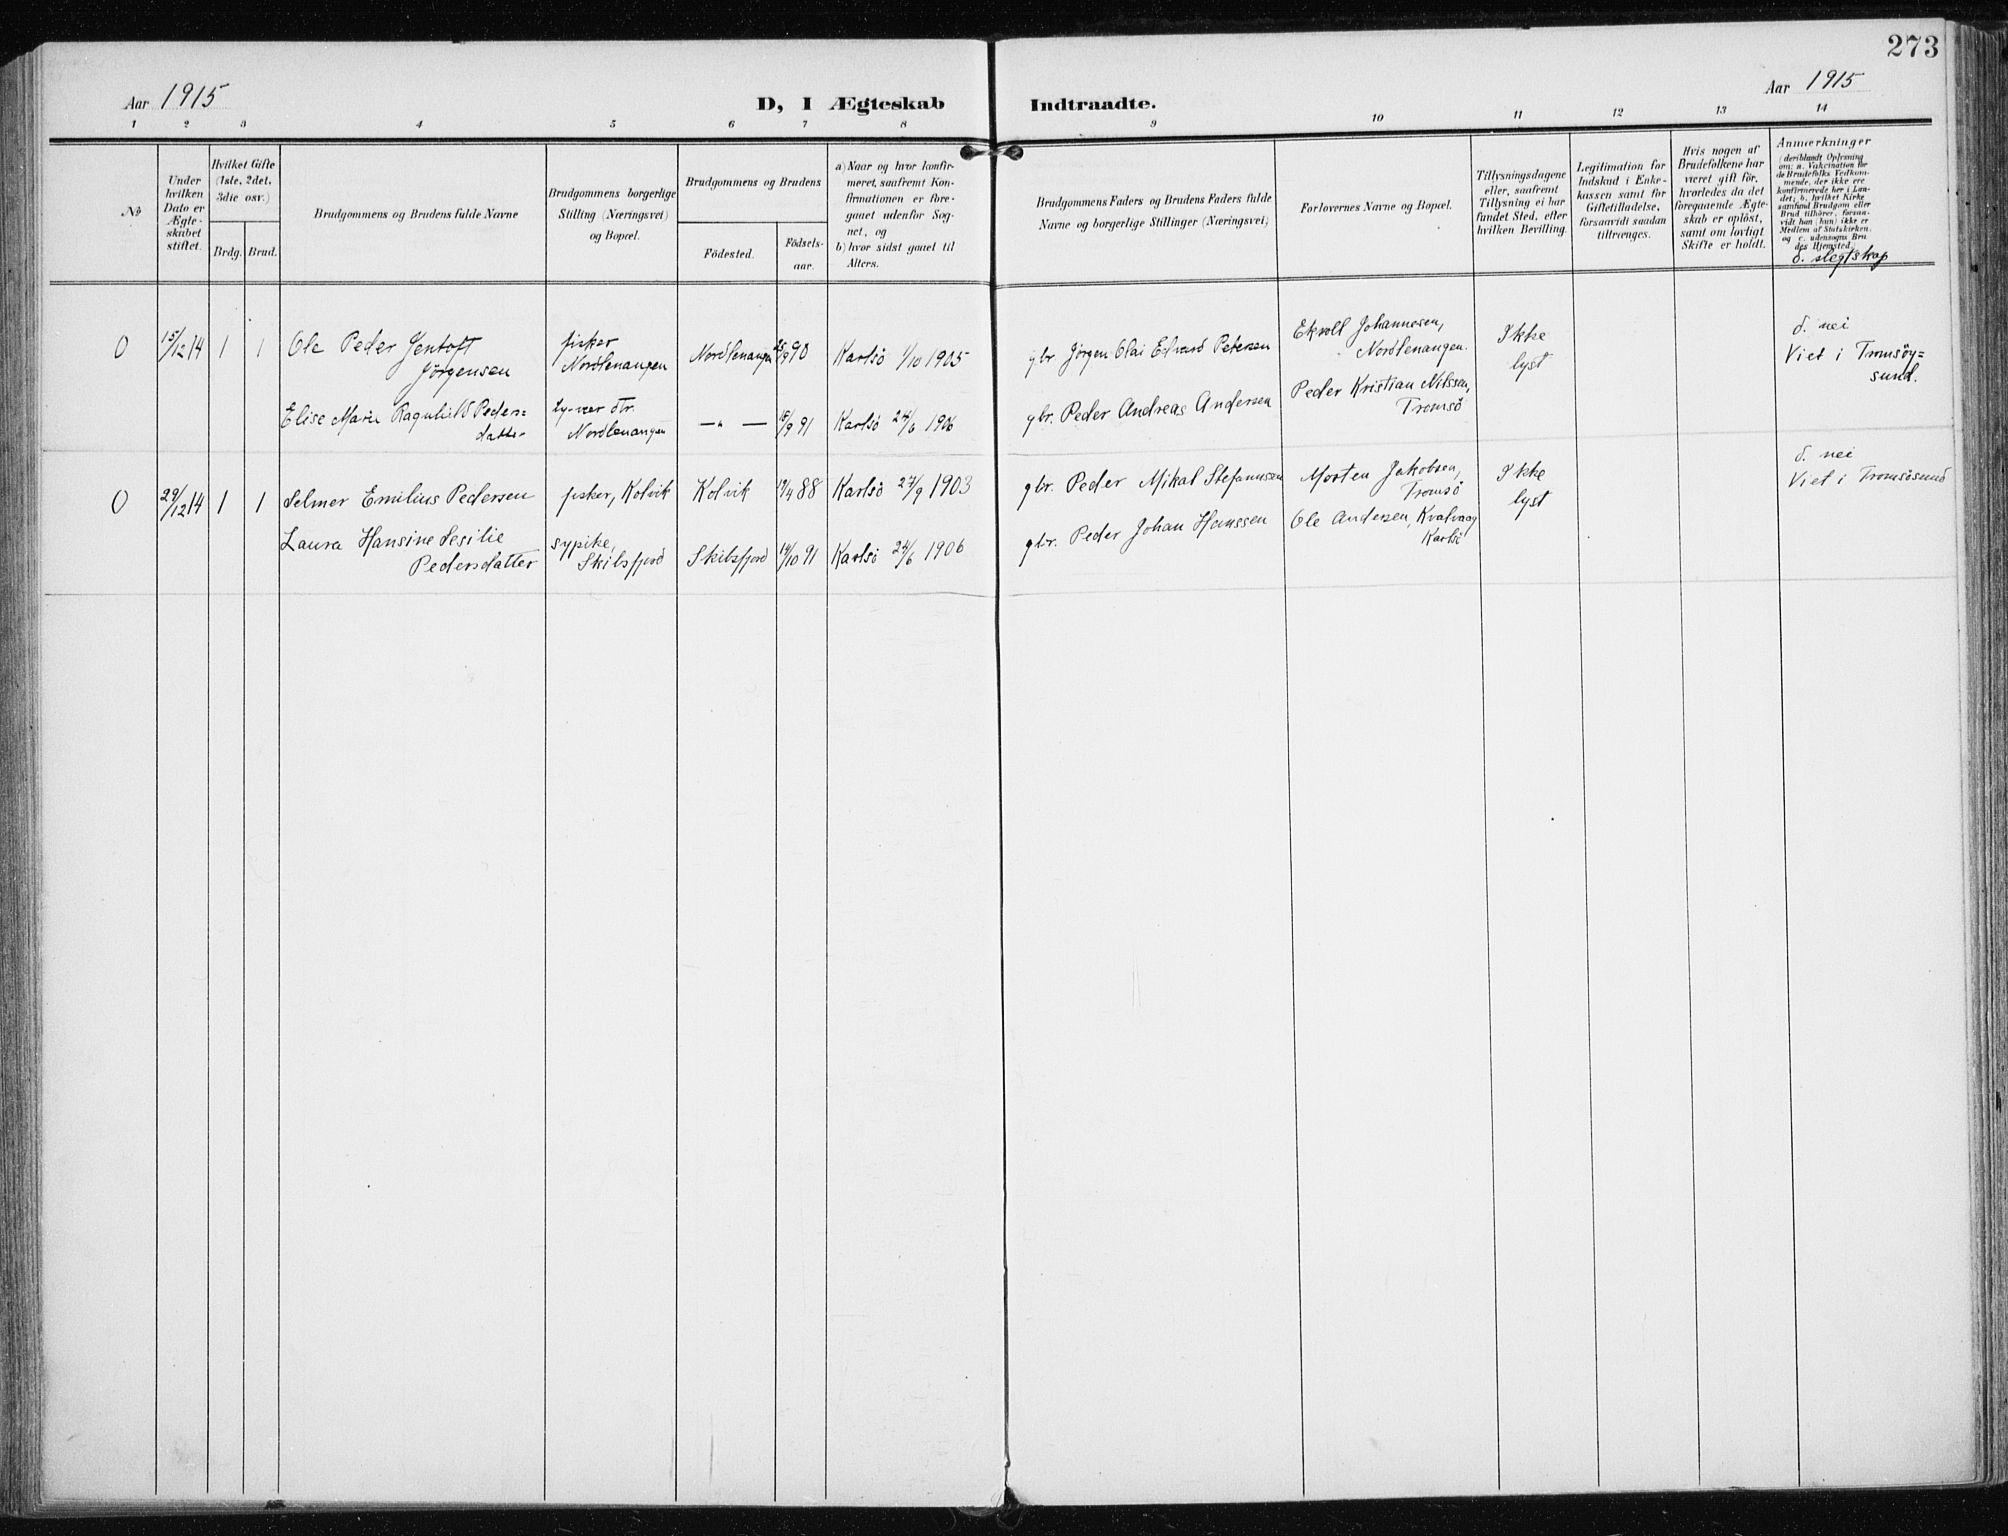 273
Aar 1915
D, I Ægteskab Indtraadte.
Aar 1915
1 2 3 4 5 6 7 8 9 10 11 12 13 14
No
Under hvilken Dato er Ægteskabet stiftet.
Hvilket Gifte (1ste, 2det, 3die osv.)
Brdg. Brud.
Brudgommens og Brudens fulde Navne
Brudgommens borgerlige Stilling (Næringsvei) og Bopæl.
Brudgommens og Brudens
Födested.
Födselsaar.
a) Naar og hvor konfirmeret, saafremt Konfirmationen er foregaaet udenfor Sognet, og
b) hvor sidst gaaet til Alters.
Brudgommens Faders og Brudens Faders fulde Navne og borgerlige Stillinger (Næringsvei)
Forlovernes Navne og Bopæl.
Tillysningsdagene eller, saafremt Tillysning ei har fundet Sted, efter hvilken Bevilling.
Legitimation for Indskud i Enkekassen samt for Giftetilladelse, forsaavidt saadan tiltrænges.
Hvis nogen af Brudefolkene har været gift för, hvorledes da det foregaaende Ægteskab er oplöst, samt om lovligt Skifte er holdt.
Anmærkninger
(deriblandt Oplysning om: a. Vakcination for de Brudefolks Vedkommende, der ikke ere konfirmerede her i Landet; b. hvilket Kirkesamfund Brudgom eller Brud tilhörer, forsaavidt han (hun) ikke er Medlem af Statskirken. og c. udensogns Brudes Hjemsted.)
d. slegtskap
0 15/12 14 1 1 Ole Peder Jentoft Jörgensen fisker Nordlenangen Nordlenangen 25/9 90 Karlsö 1/10 1905 gbr. Jörgen Olai Edvard Petersen Ekroll Johannesen, Nordlenangen. Ikke lyst d. nei Viet i Tromsöysund.
Elise Marie Ragnhild Pedersdatter Nordlenangen — " — 15/9 91 Karlsö 24/6 1906 gbr. Peder Andreas Andersen Peder Kristian Nilssen, Tromsö
0 29/12 14 1 1 Selmer Emilius Pedersen fisker, Kolvik Kolvik 19/4 88 Karlsö 27/9 1903 gbr. Peder Mikal Stefanussen Morten Jakobsen, Tromsö Ikke lyst d. nei Viet i Tromsösund
Laura Hansine Sesilie Pedersdatter sypike, Skibsfjord Skibsfjord 14/10 91 Karlsö 24/6 1906 gbr. Peder Johan Hanssen Ole Andersen, Kvalvaag Karlsö